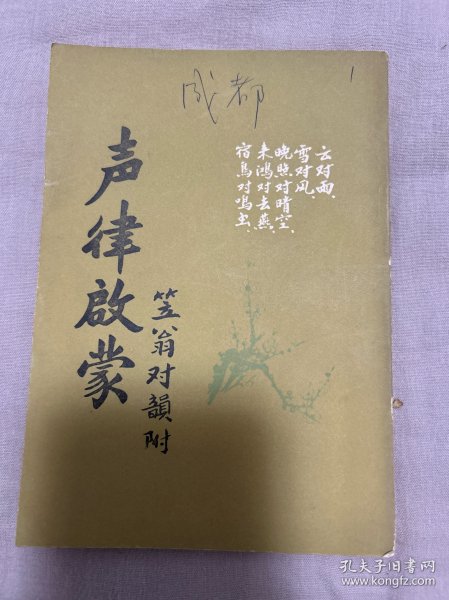 成都
1
云对雨、
雪对风、
晚照对晴空、
来鸿对去燕、
宿鸟对鸣虫、
声律啟蒙
笠翁对韻附
孔夫子旧书网
www.kongfz.com